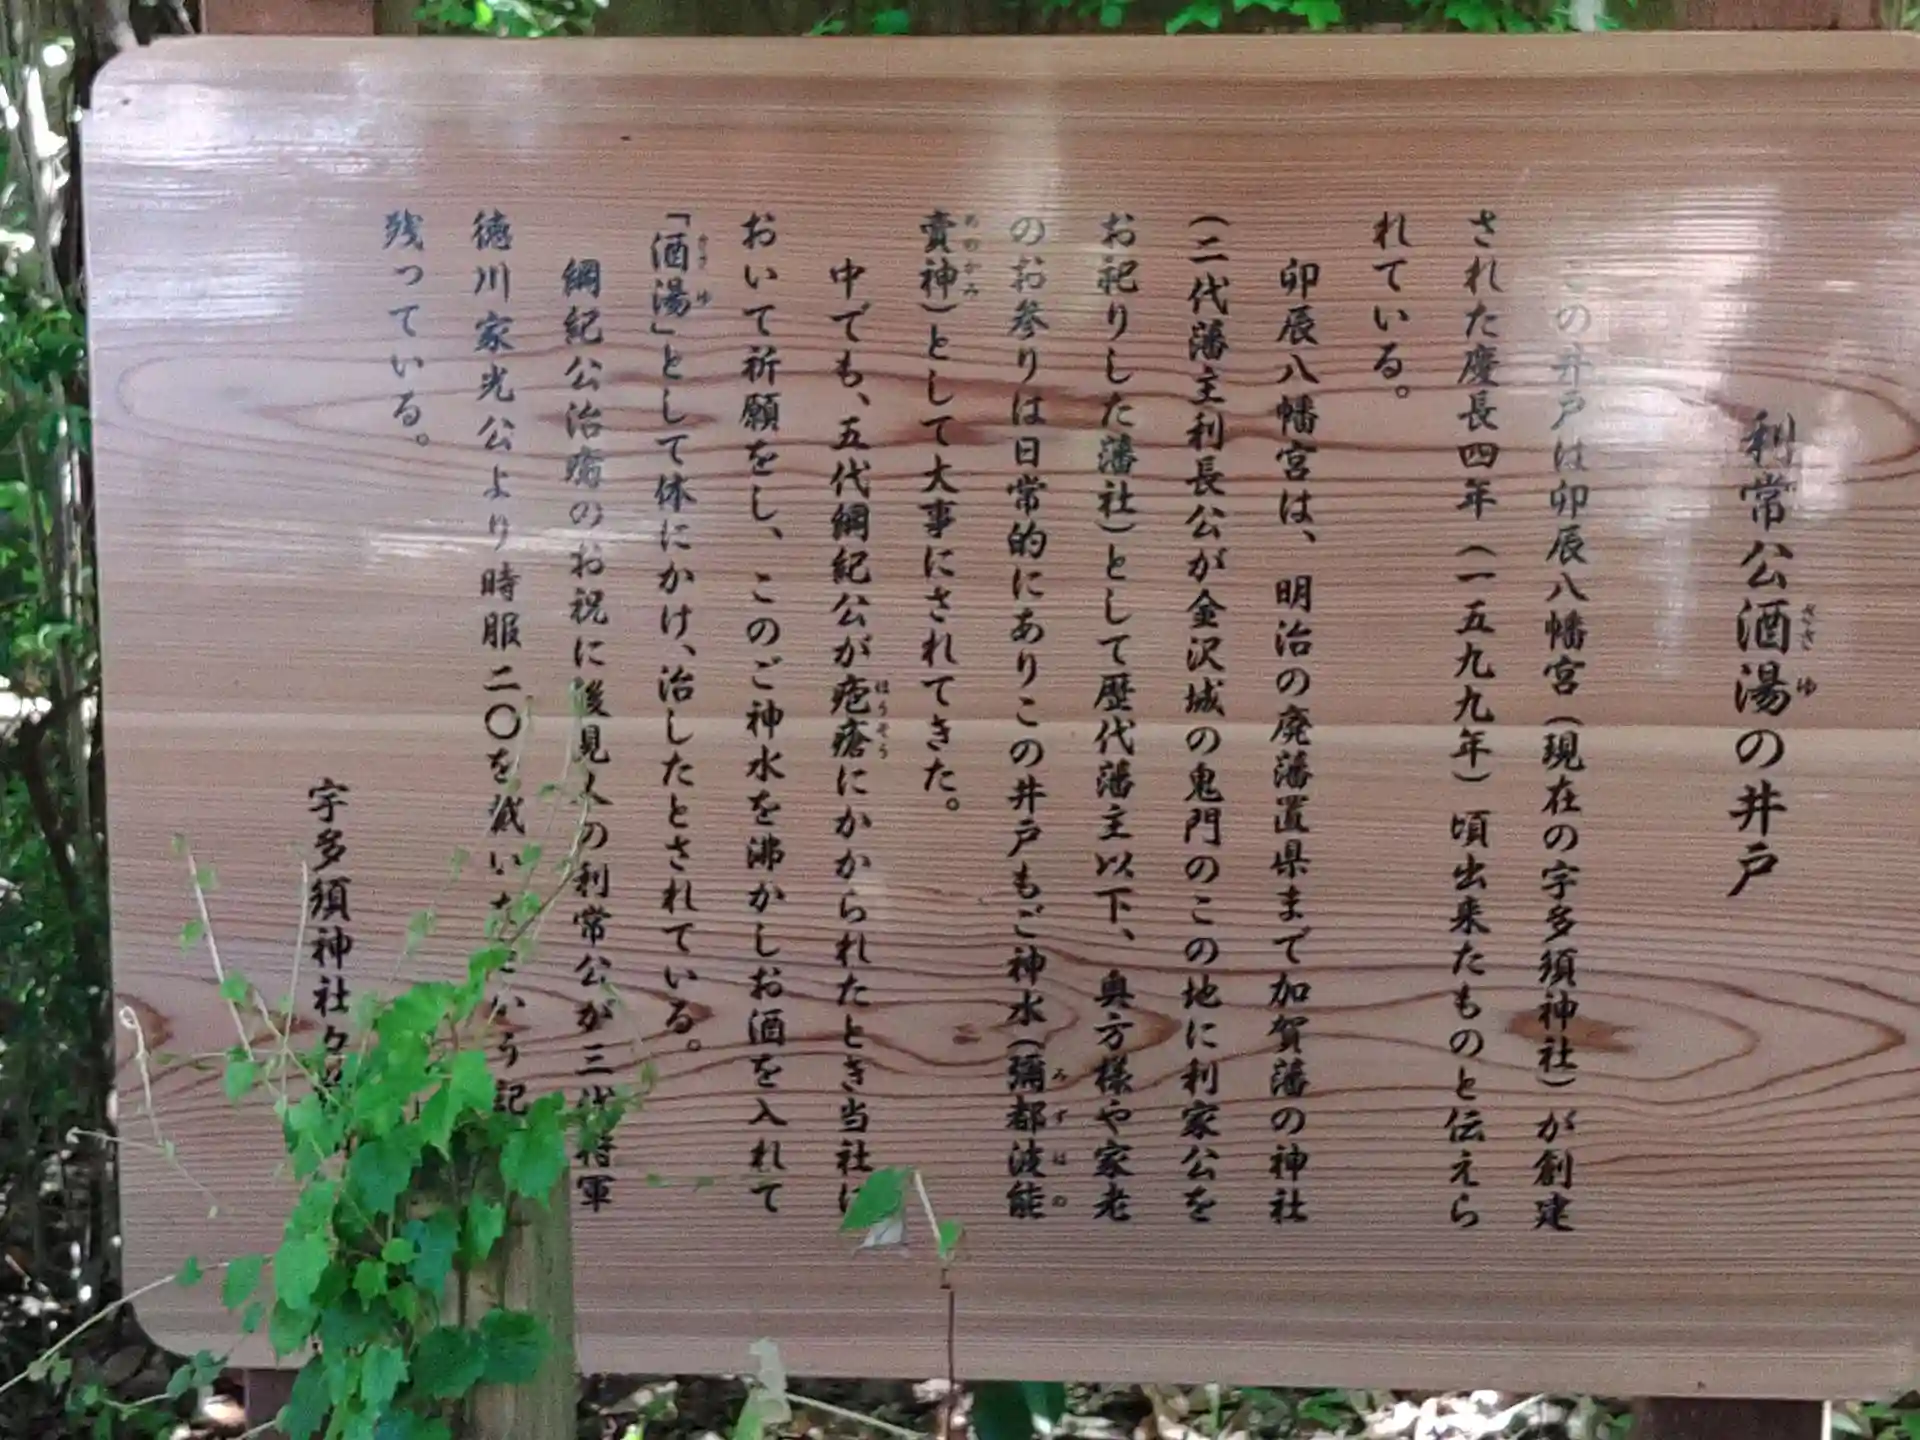 利常公酒湯の井戸
この井戸は卯辰八幡宮（現在の宇多須神社）が創建
された慶長四年（一五九九年）頃出来たものと伝えら
れている。
卯辰八幡宮は、明治の廃藩置県まで加賀藩の神社
（二代藩主利長公が金沢城の鬼門のこの地に利家公を
お祀りした藩社）として歴代藩主以下、奥方様や家老
のお参りは日常的にありこの井戸もご神水（彌都波能
賣神）として大事にされてきた。
中でも、五代綱紀公が疱瘡にかかられたとき当社に
おいて祈願をし、このご神水を沸かしお酒を入れて
「酒湯」として体にかけ、治したとされている。
綱紀公治癒のお祝に後見人の利常公が三代将軍
徳川家光公より時服二〇を戴いたという記
残っている。
宇多須神社々